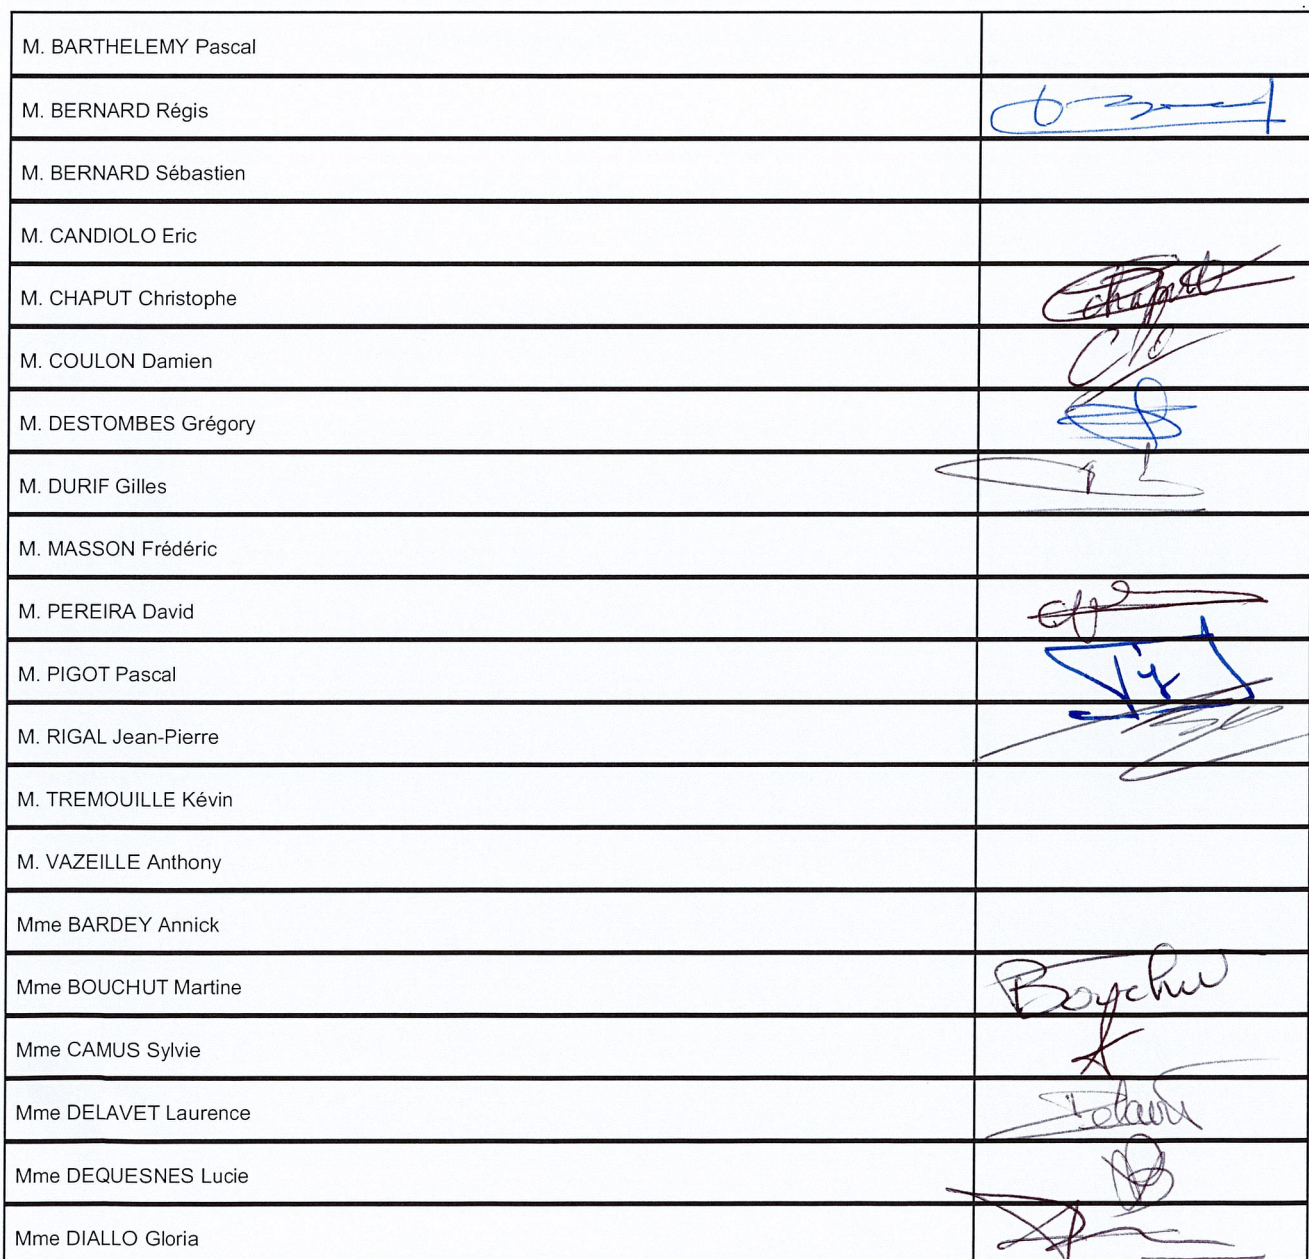 M. BARTHELEMY Pascal
M. BERNARD Régis
M. BERNARD Sébastien
M. CANDIOLO Eric
M. CHAPUT Christophe Chaput
M. COULON Damien
M. DESTOMBES Grégory
M. DURIF Gilles
M. MASSON Frédéric
M. PEREIRA David
M. PIGOT Pascal
M. RIGAL Jean-Pierre
M. TREMOUILLE Kévin
M. VAZEILLE Anthony
Mme BARDEY Annick
Mme BOUCHUT Martine
Mme CAMUS Sylvie
Mme DELAVET Laurence
Mme DEQUESNES Lucie
Mme DIALLO Gloria